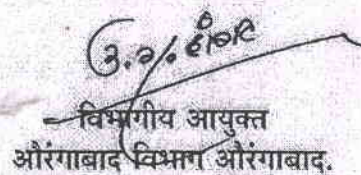 विभागीय आयुक्त
औरंगाबाद विभाग औरंगाबाद.